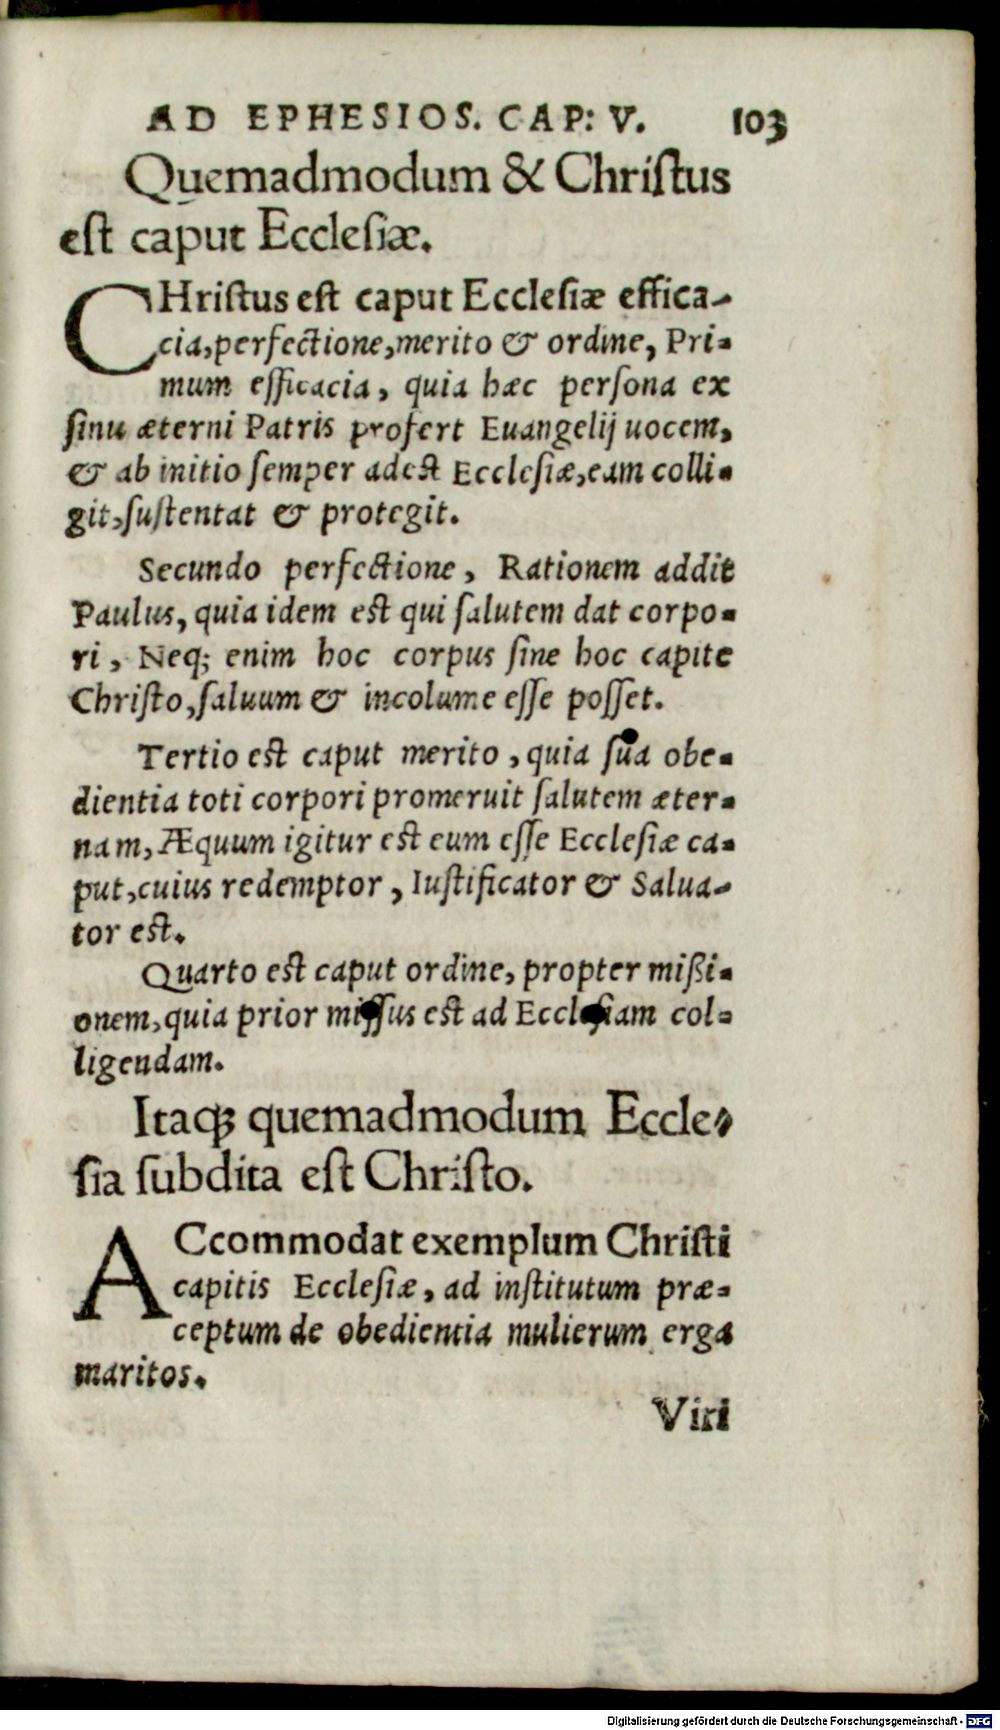 AD EPHESIOS. CAP: V. 103
Quemadmodum & Chriſtus
eſt caput Eccleſiæ.
CHriſtus eſt caput Eccleſiæ effica-
cia, perfectione, merito & ordine, Pri-
mum efficacia, quia hæc perſona ex
ſinu æterni Patris profert Euangelij uocem,
& ab initio ſemper adeſt Eccleſiæ, eam colli-
git, ſuſtentat & protegit.
Secundo perfectione, Rationem addit
Paulus, quia idem eſt qui ſalutem dat corpo-
ri, Neq; enim hoc corpus ſine hoc capite
Chriſto, ſaluum & incolume eſſe poſſet.
Tertio eſt caput merito, quia ſua obe-
dientia toti corpori promeruit ſalutem æter-
nam, Æquum igitur eſt eum eſſe Eccleſiæ ca-
put, cuius redemptor, Iuſtificator & Salua-
tor eſt.
Quarto eſt caput ordine, propter mißi-
onem, quia prior miſſus eſt ad Eccleſiam col-
ligendam.
Itaq; quemadmodum Eccle-
ſia ſubdita eſt Chriſto.
ACcommodat exemplum Chriſti
capitis Eccleſiæ, ad inſtitutum præ-
ceptum de obedientia mulierum erga
maritos.
Viri
Digitalisierung gefördert durch die Deutsche Forschungsgemeinschaft - DFG